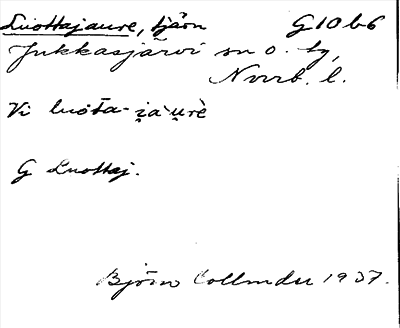 Luottajaure, tjärn G10 b6
Jukkasjärvi sn o. tg,
Norrb. l.
Vi luo̅ta-i̯a-u̯rè
G Luottaj.
Björn Collinder 1937.